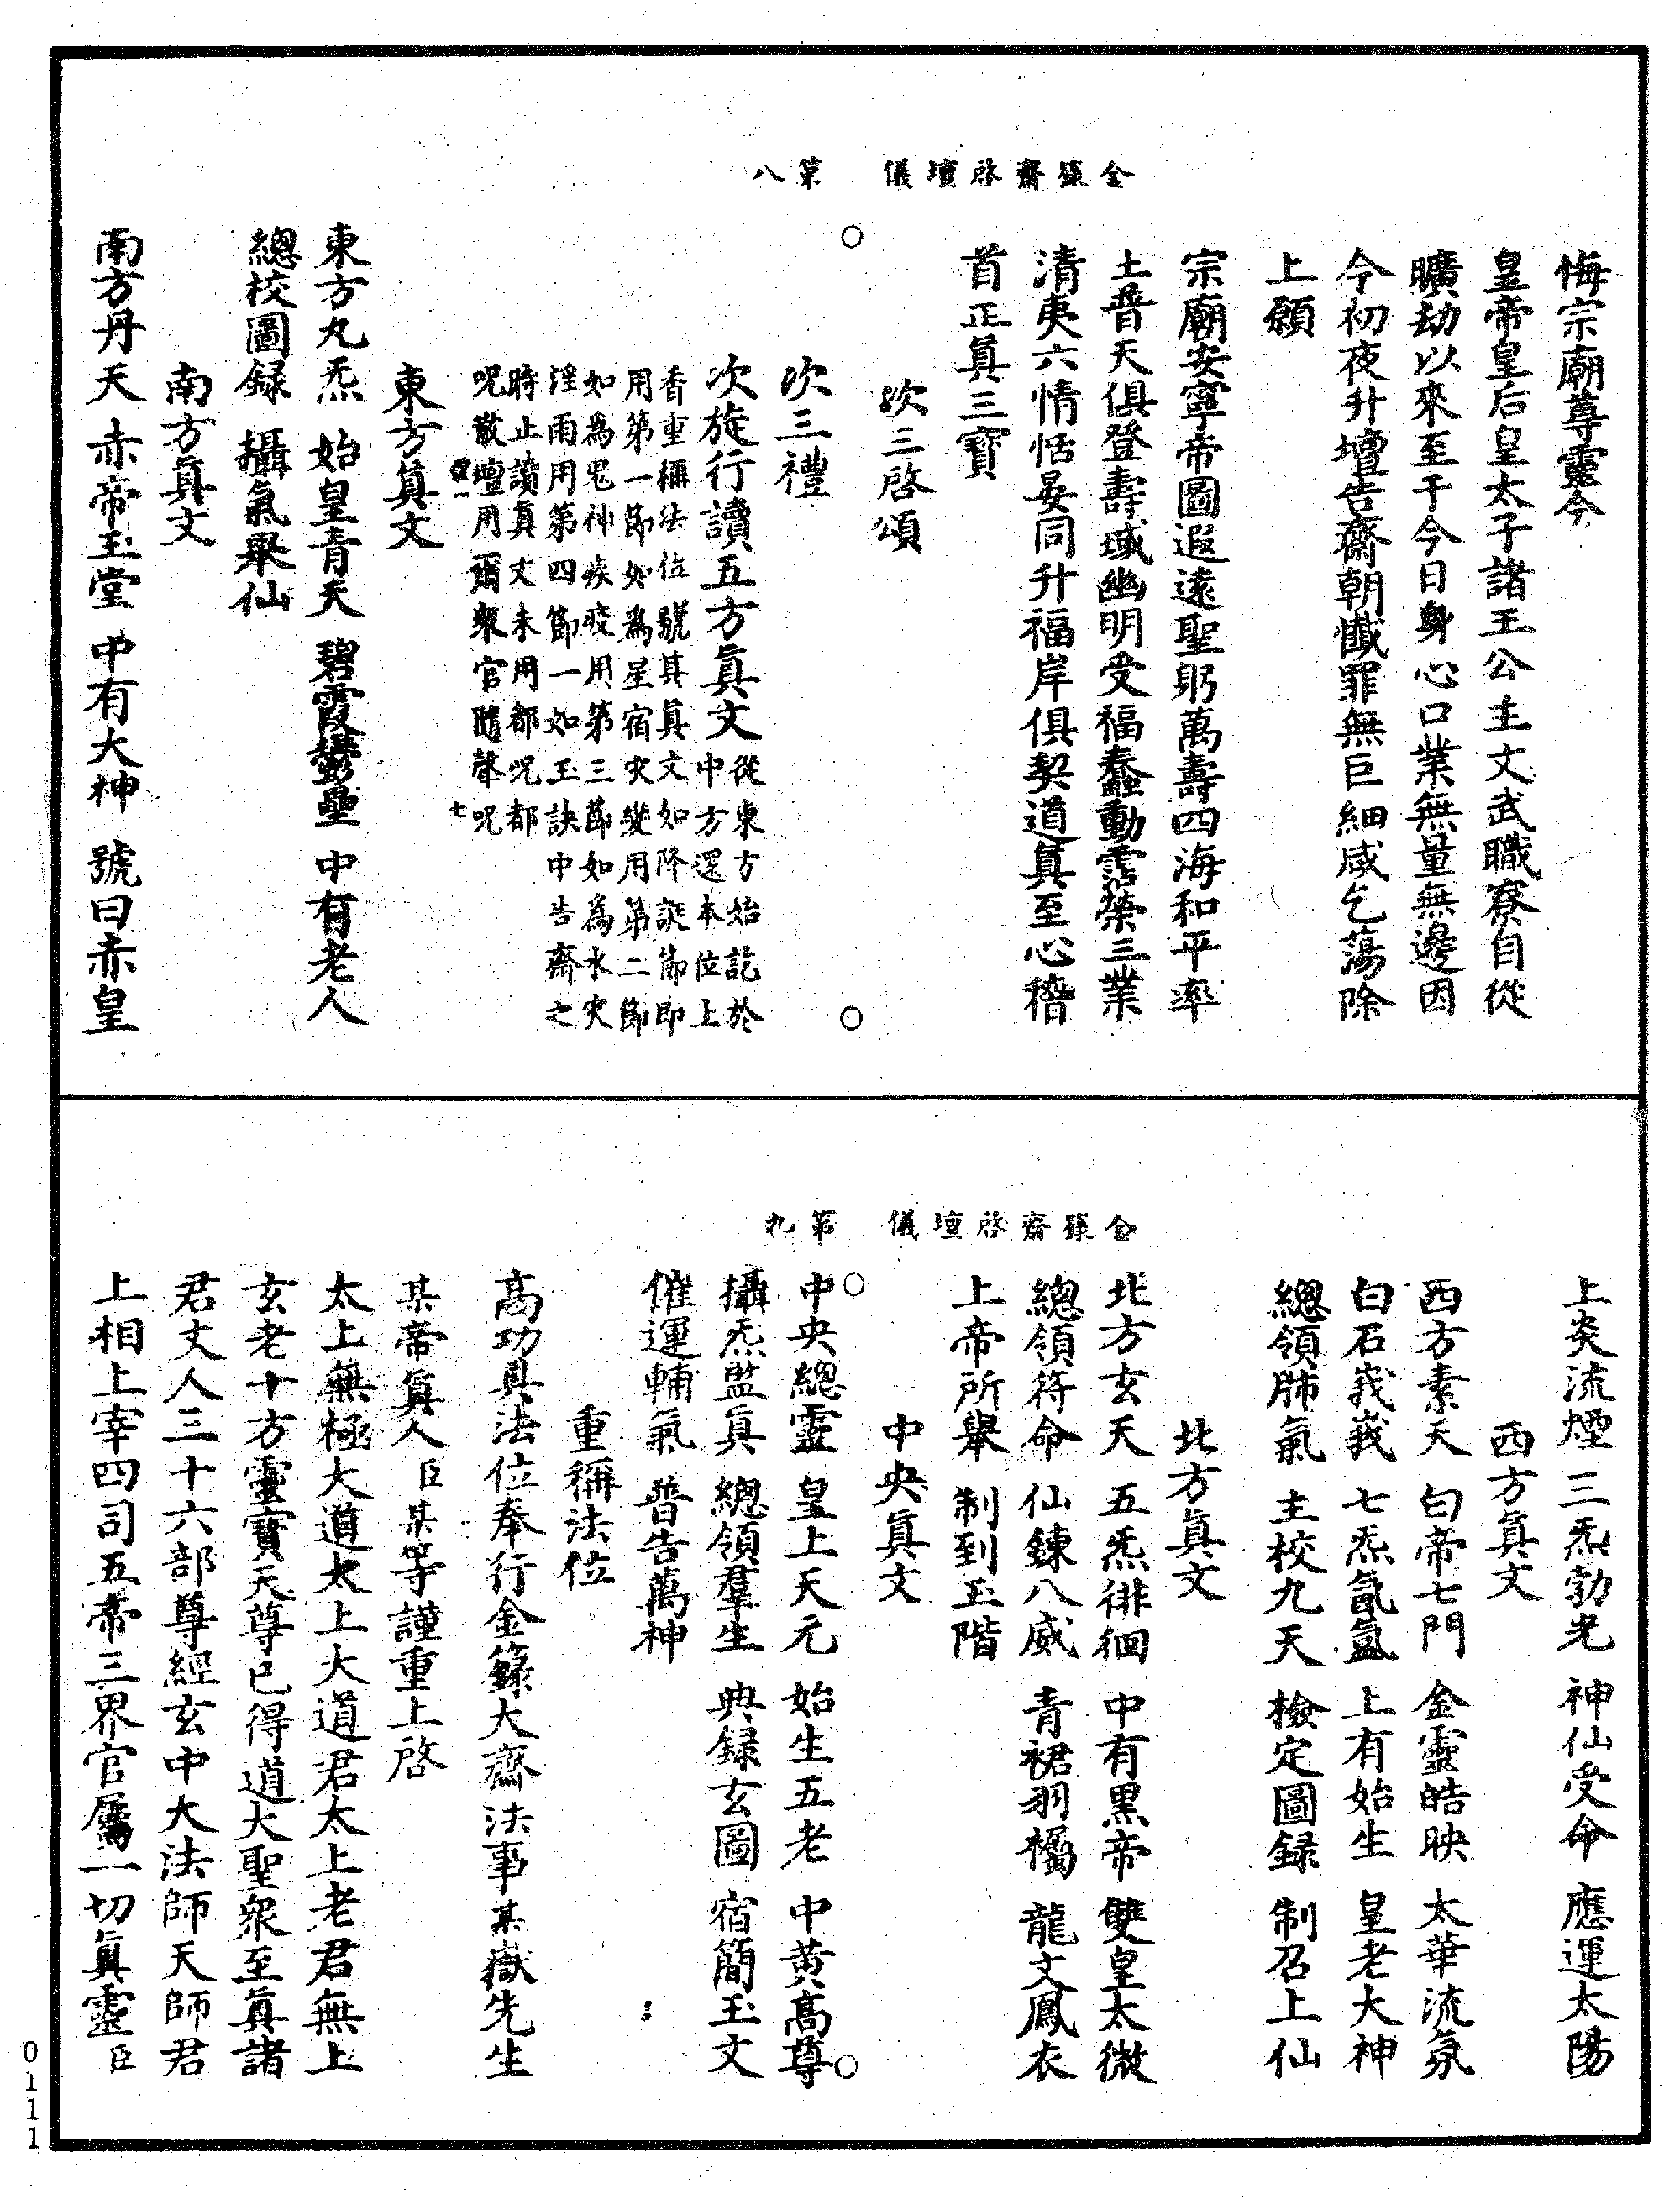 金籙齋啓壇儀　第八
悔宗廟尊靈今
皇帝皇后皇太子諸王公主文武職寮自從
曠劫以來至于今日身心口業無量無邊因
今初夜升壇告齋朝懺罪無巨細咸乞蕩除
上願
宗廟安寧帝圖遐遠聖躬萬壽四海和平率
土普天俱登壽域幽明受福蠢動霑榮三業
清夷六情恬晏同升福岸俱契道真至心稽
首正真三寶
次三啓頌
次三禮
次旋行讀五方真文從東方始訖於
中方還本位上
香重稱法位號其真文如降誕節即
用第一節如為星宿灾變用第二節
如為鬼神疾疫用第三節如為水灾
淫雨用第四節一如玉訣中告齋之
時止讀真文未用都呪都
呪散壇用爾衆官隨聲呪
七
東方真文
東方九炁　始皇青天　碧霞鬱壘　中有老人
總校圖録　攝氣舉仙
南方真文
南方丹天　赤帝玉堂　中有大神　號曰赤皇
金籙齋啓壇儀　第九
上炎流煙　三炁勃光　神仙受命　應運太陽
西方真文
西方素天　白帝七門　金靈皓映　太華流氛
白石峩峩　七炁氤氳　上有始生　皇老大神
總領肺氣　主校九天　檢定圖録　制召上仙
北方真文
北方玄天　五炁徘徊　中有黒帝　雙皇太微
總領符命　仙錬八威　青裙羽襡　龍文鳳衣
上帝所舉　制到玉階
中央真文
中央總靈　皇上天元　始生五老　中黄高尊
攝炁監真　總領羣生　典録玄圖　宿簡玉文
催運輔氣　普告萬神
重稱法位
高功具法位奉行金籙大齋法事某嶽先生
某帝真人臣某等謹重上啓
太上無極大道太上大道君太上老君無上
玄老十方靈寶天尊已得道大聖衆至真諸
君丈人三十六部尊經玄中大法師天師君
上相上宰四司五帝三界官屬一切真靈臣
0111